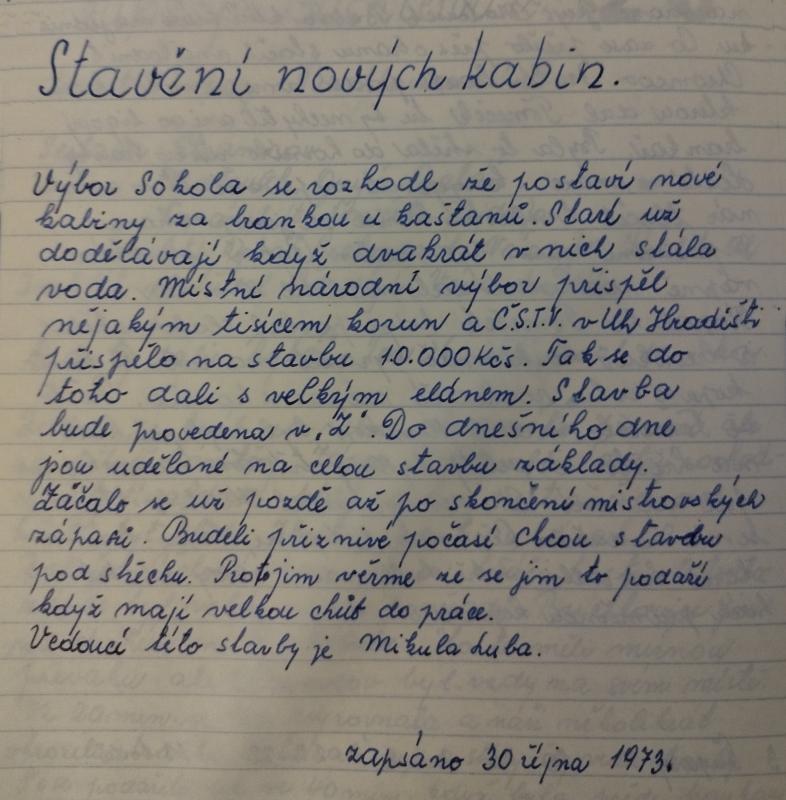 Stavění nových kabin.
Výbor Sokola se rozhodl že postaví nové
kabiny za brankou u kaštanů. Staré už
dodělávají když dvakrát v nich stála
voda. Místní národní výbor přispěl
nějakým tisícem korun a Č.S.T.V. v Uh Hradišti
přispělo na stavbu 10.000 Kčs. Tak se do
toho dali s velkým elánem. Stavba
bude provedena v „Z“. Do dnešního dne
jsou udělané na celou stavbu základy.
Záčalo se už pozdě až po skončení mistrovských
zápasů. Budeli příznivé počasí chcou stavbu
pod střechu. Proto jim věřme že se jim to podaří
když mají velkou chůt do práce.
Vedoucí této stavby je Mikula Luba.
zapsáno 30 října 1973.